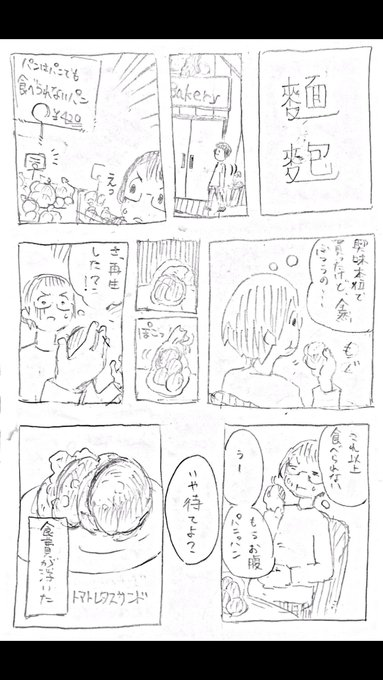 麵
麭
Bakery
パンはパンでも
食べられないパン
¥420
えっ
興味本位で
もぐ
ぽこっ
さ、再生
した!?
これ以上
食べられない
うー
もうお腹
パンパン
いや待てよ?
トマトレタスサンド
食費が浮いた